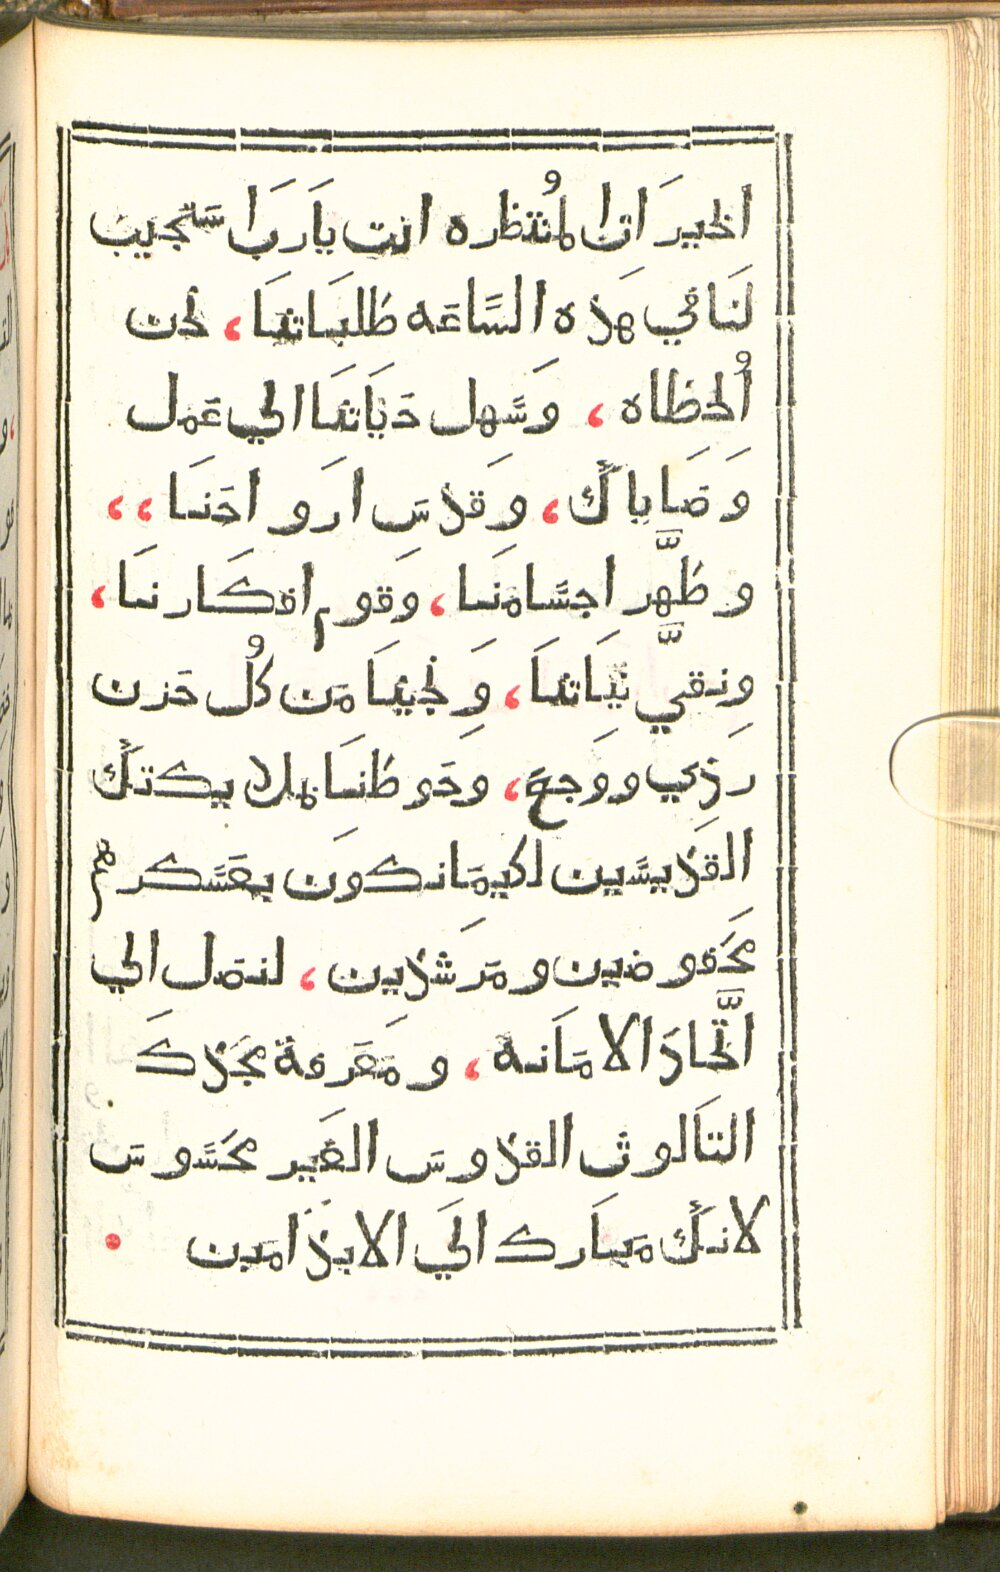 الخيرَ اتِ المُنتظره انت يَارَبَ اسَتجيب
لَنَا في هَذه السَّاعَه طلبَاتنَا، نحن
اُلخطاه، وَسَّهل حَيَاتنَا الي عَمل
وَصَايَاكَّ، وقَدسَ ارَواحَنَا،،
وطَهَّر اجسَّامنَا، وَقوم افكَارنَا،
وِنقي نيَّاتنَا، وَنِجينَا مَن كُل حَزن
رَذِي ووَجع، وحَوطنَا بملايكتكَّ
القدَيسَّين لكيمَا نكون بعَسَّكرهم
محَفوضين ومَرَشدين، لنصَل الي
اتَّحادَ الامَانة، ومَعَرفة مجَدكَ
التَالوث القدوسَ الغَير محَسَّوسَ
لانكَّ مبَارك الَي الابدَ امَين